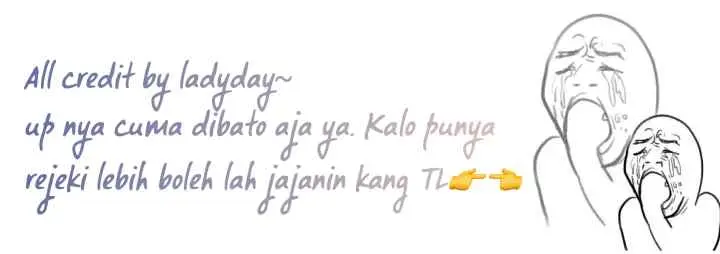 All credit by ladyday~
up nya cuma dibato aja ya. Kalo punya
rejeki lebih boleh lah jajanin kang TL👉👈